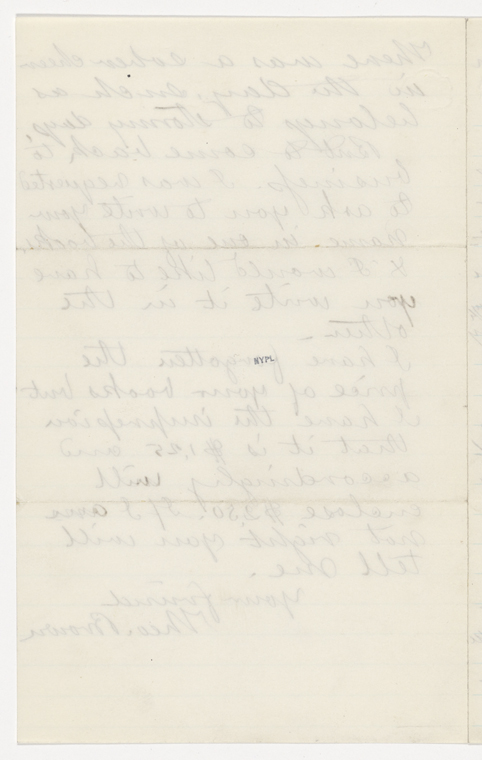 There was a sober cheer
in the day, such as
belongs to stormy days,
But to come back to
business. I was requested
to ask you to write your
name in one of the books,
& I would like to have
you write it in the
other.
I have forgotten the
NYPL
price of your books but
I have the impression
that it is $1,25 and
accordingly will
enclose $2.50. If I am
not right you will
tell me.
Your friend
Theo. Brown